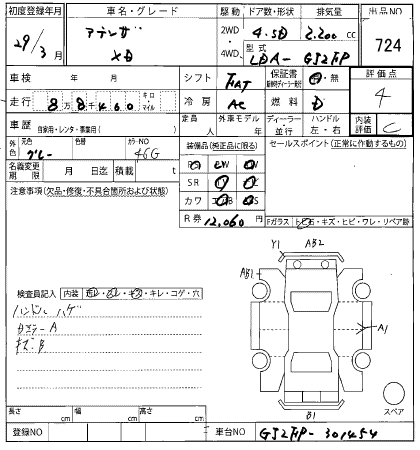 初度登録年月 車名・グレード 駆動 ドア数・形状 排気量 出品NO
29/3月 アテンザ XD 2WD 4WD 4.5D 2,200 cc 724
型式 LDA-GJ2FP
車検 年 月 シフト FAT 保証書 有・無 評価点
走行 8万8千460 キロ・マイル 冷房 AC 燃料 D 4
車歴 自家用・レンタ・事業用( ) 定員 人 外車モデル 年 ディーラー・並行 ハンドル 左・右 内装評価 C
外色 元色 グレー 色替 カラーNO 46G 装備品(純正品に限る) セールスポイント(正常に作動するもの)
名義変更期限 月 日迄 積載 t
SR
注意事項(欠品・修復・不具合箇所および状態) カワ
R券 12,060 円 Fガラス トビ石・キズ・ヒビ・ワレ・リペア跡
Y1 AB2
AB1
検査員記入 内装 キレ・コゲ・穴
ハンドル ハゲ
A
A1
キズ B
スペア
長さ cm 幅 cm 高さ cm
B1
登録NO 車台NO GJ2FP-301454